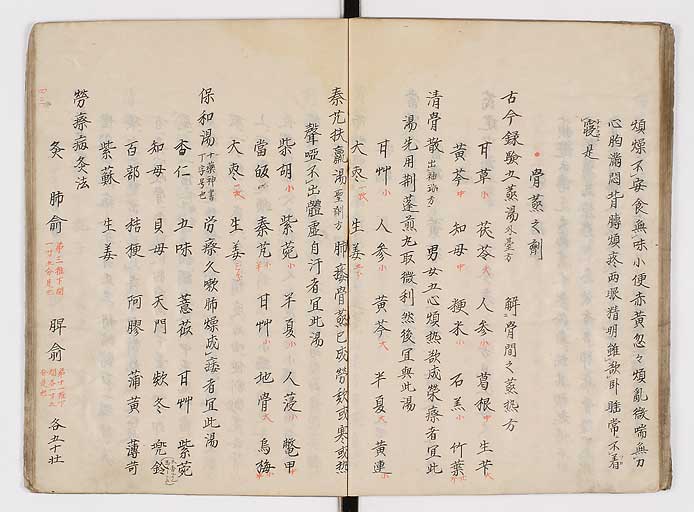 煩燥不安食無味小便赤黄忽々煩乱微喘無力
心胸満悶背膊煩疼両眼精明雖欲臥睡常不着
寝是
骨蒸之剤
古今録験五蒸湯 外臺方 解骨間之蒸熱方
甘草 小 茯苓 大 人参 小 葛根 中 生苄 大
黄芩 中 知母 中 粳米 小 石羔 小 竹葉
清骨散 出袖珍方 男女五心煩熱欲成労瘵者宜此
湯先用荆蓬煎丸取微利然後宜與此湯
甘艸 小 人参 小 黄芩 大 半夏 大 黄連 小
大枣 一枚 生姜
秦芃扶羸湯 聖剤方 肺痿骨蒸已成労欬或寒或熱
聲唖不出體虚自汗者宜此湯
柴胡 小 紫菀 小 半夏 小 人薓 小 鱉甲 中
當皈 秦芃 小 甘艸 小 地骨 大 烏梅
大枣 一枚 生姜
保和湯 十藥神書 丁字号也 労瘵久嗽肺燥成痿者宜此湯
杏仁 五味 薏苡 甘艸 紫菀
知母 貝母 天門 欵冬 兜鈴
百部 桔梗 阿膠 蒲黄 薄苛
紫蘇 生姜
四三
勞瘵病灸法
灸 肺兪 第三推下間 一寸五分是也 脾兪 第十一推下 間各一寸五 分是也 各五十壮